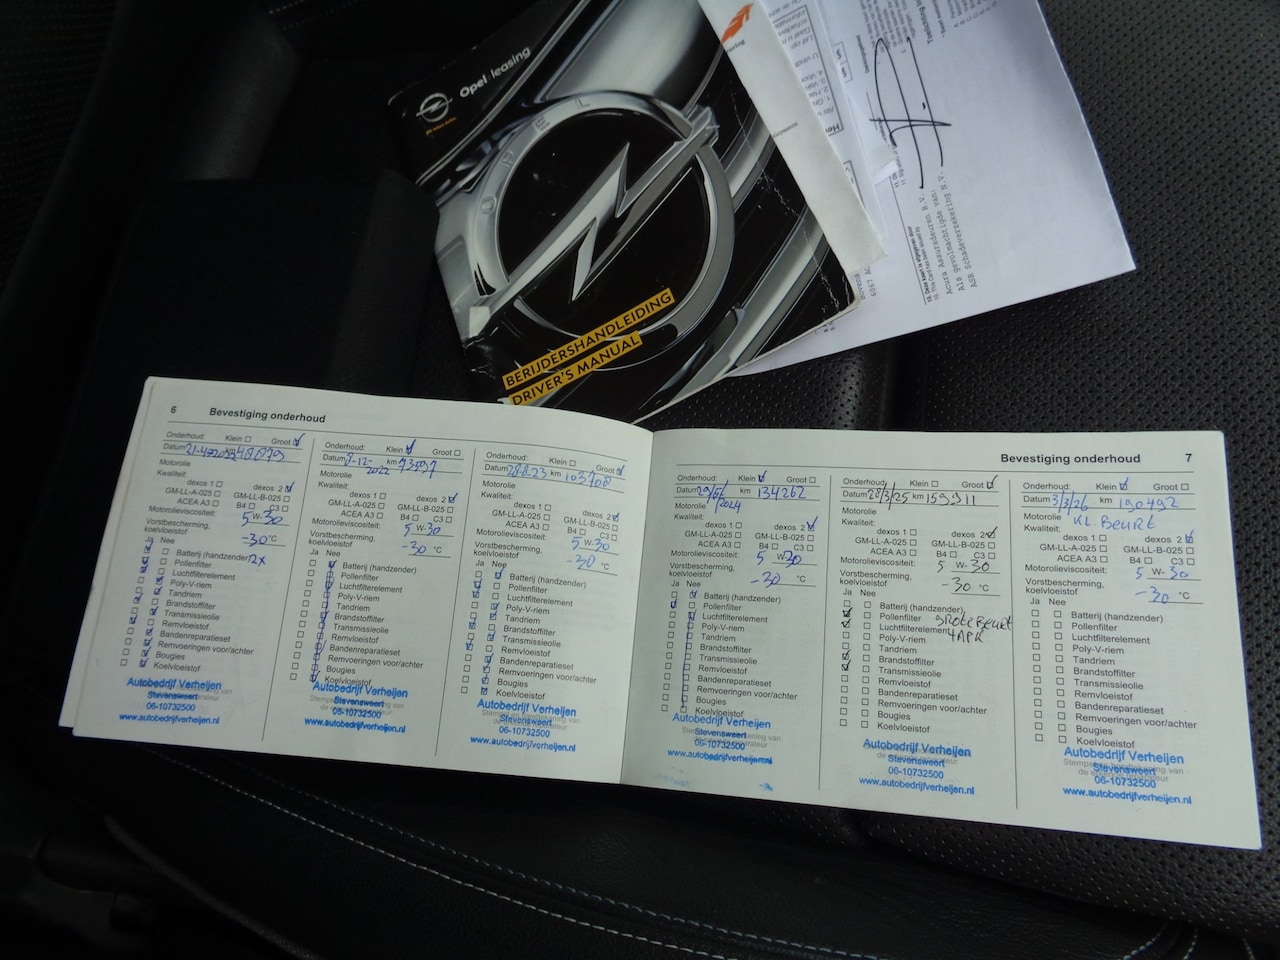 Opel leasing
OPEL
BERIJDERSHANDLEIDING
DRIVER'S MANUAL
15. Deze kaart is afgegeven door:
Acura Assuradeuren B.V.
Als gevolmachtigde van:
ASR Schadeverzekering N.V.
6 Bevestiging onderhoud
Onderhoud: Klein Groot
Datum km 48879
Motorolie
Kwaliteit:
dexos 1 dexos 2
GM-LL-A-025 GM-LL-B-025
ACEA A3 B4 C3
Motorolieviscositeit: 5 W-30
Vorstbescherming,
koelvloeistof -30 °C
Ja Nee
Batterij (handzender) 2x
Pollenfilter
Luchtfilterelement
Poly-V-riem
Tandriem
Brandstoffilter
Transmissieolie
Remvloeistof
Bandenreparatieset
Remvoeringen voor/achter
Bougies
Koelvloeistof
Autobedrijf Verheijen
Stevensweert
06-10732500
www.autobedrijfverheijen.nl
Onderhoud: Klein Groot
Datum 9-12-2022 km 73597
Motorolie
Kwaliteit:
dexos 1 dexos 2
GM-LL-A-025 GM-LL-B-025
ACEA A3 B4 C3
Motorolieviscositeit: 5 W-30
Vorstbescherming,
koelvloeistof -30 °C
Ja Nee
Batterij (handzender)
Pollenfilter
Luchtfilterelement
Poly-V-riem
Tandriem
Brandstoffilter
Transmissieolie
Remvloeistof
Bandenreparatieset
Remvoeringen voor/achter
Bougies
Koelvloeistof
Autobedrijf Verheijen
Stevensweert
06-10732500
www.autobedrijfverheijen.nl
Onderhoud: Klein Groot
Datum 28-8-23 km 103708
Motorolie
Kwaliteit:
dexos 1 dexos 2
GM-LL-A-025 GM-LL-B-025
ACEA A3 B4 C3
Motorolieviscositeit: 5 W-30
Vorstbescherming,
koelvloeistof -30 °C
Ja Nee
Batterij (handzender)
Pollenfilter
Luchtfilterelement
Poly-V-riem
Tandriem
Brandstoffilter
Transmissieolie
Remvloeistof
Bandenreparatieset
Remvoeringen voor/achter
Bougies
Koelvloeistof
Autobedrijf Verheijen
Stevensweert
06-10732500
www.autobedrijfverheijen.nl
Bevestiging onderhoud 7
Onderhoud: Klein Groot
Datum km 134262
Motorolie
Kwaliteit:
dexos 1 dexos 2
GM-LL-A-025 GM-LL-B-025
ACEA A3 B4 C3
Motorolieviscositeit: 5 W-30
Vorstbescherming,
koelvloeistof -30 °C
Ja Nee
Batterij (handzender)
Pollenfilter
Luchtfilterelement
Poly-V-riem
Tandriem
Brandstoffilter
Transmissieolie
Remvloeistof
Bandenreparatieset
Remvoeringen voor/achter
Bougies
Koelvloeistof
Autobedrijf Verheijen
Stevensweert
06-10732500
www.autobedrijfverheijen.nl
Onderhoud: Klein Groot
Datum 28/3/25 km 159911
Motorolie
Kwaliteit:
dexos 1 dexos 2
GM-LL-A-025 GM-LL-B-025
ACEA A3 B4 C3
Motorolieviscositeit: 5 W-30
Vorstbescherming,
koelvloeistof -30 °C
Ja Nee
Batterij (handzender)
Pollenfilter grote Beurt
Luchtfilterelement + APK
Poly-V-riem
Tandriem
Brandstoffilter
Transmissieolie
Remvloeistof
Bandenreparatieset
Remvoeringen voor/achter
Bougies
Koelvloeistof
Autobedrijf Verheijen
Stevensweert
06-10732500
www.autobedrijfverheijen.nl
Onderhoud: Klein Groot
Datum 3/3/26 km 190492
Motorolie KL Beurt
Kwaliteit:
dexos 1 dexos 2
GM-LL-A-025 GM-LL-B-025
ACEA A3 B4 C3
Motorolieviscositeit: 5 W-30
Vorstbescherming,
koelvloeistof -30 °C
Ja Nee
Batterij (handzender)
Pollenfilter
Luchtfilterelement
Poly-V-riem
Tandriem
Brandstoffilter
Transmissieolie
Remvloeistof
Bandenreparatieset
Remvoeringen voor/achter
Bougies
Koelvloeistof
Autobedrijf Verheijen
Stevensweert
06-10732500
www.autobedrijfverheijen.nl